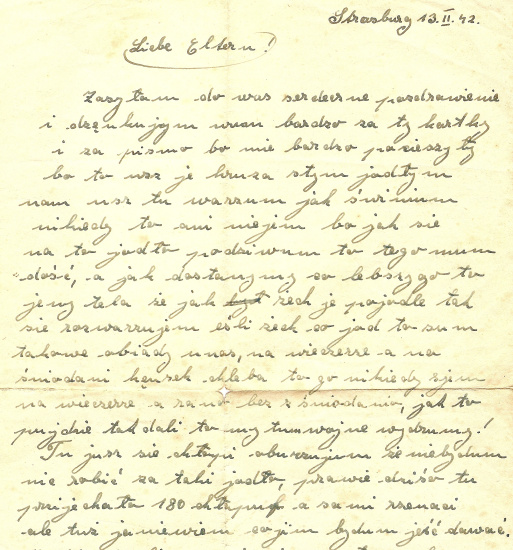 Strasburg 13.II.42.
Liebe Eltern!
Zasyłam do was serdeczne pozdrawienie
i dzenkujym wum bardzo za ty kartky
i za pismo bo mie bardzo pocieszyty
bo to wsz je hruza stym jadłym
nam usz tu warzum jak świnium
nikiedy to ani niejem bo jak sie
na to jadło podziwum to tego mum
dość, a jak dostanymy co lebszygo to
jeny tela że jak żech je pojodle tak
sie rozwarzujem eśli żech co jad to sum
takowe obiady unas, na wieczerze a na
śniodani kęnsek chleba to go nikiedy zjem
na wieczerze a rano bez śniodanio, jak to
pujdzie tak dali to my tum wojne wydrzmy!
Tu jusz sie chłopi oburzujum że niebydum
nic robić za taki jadło, prawie dziśo tu
prijechało 180 chłopuf a sami rzenaci
ale tusz janiewiem co jim bydum jeść dawać.